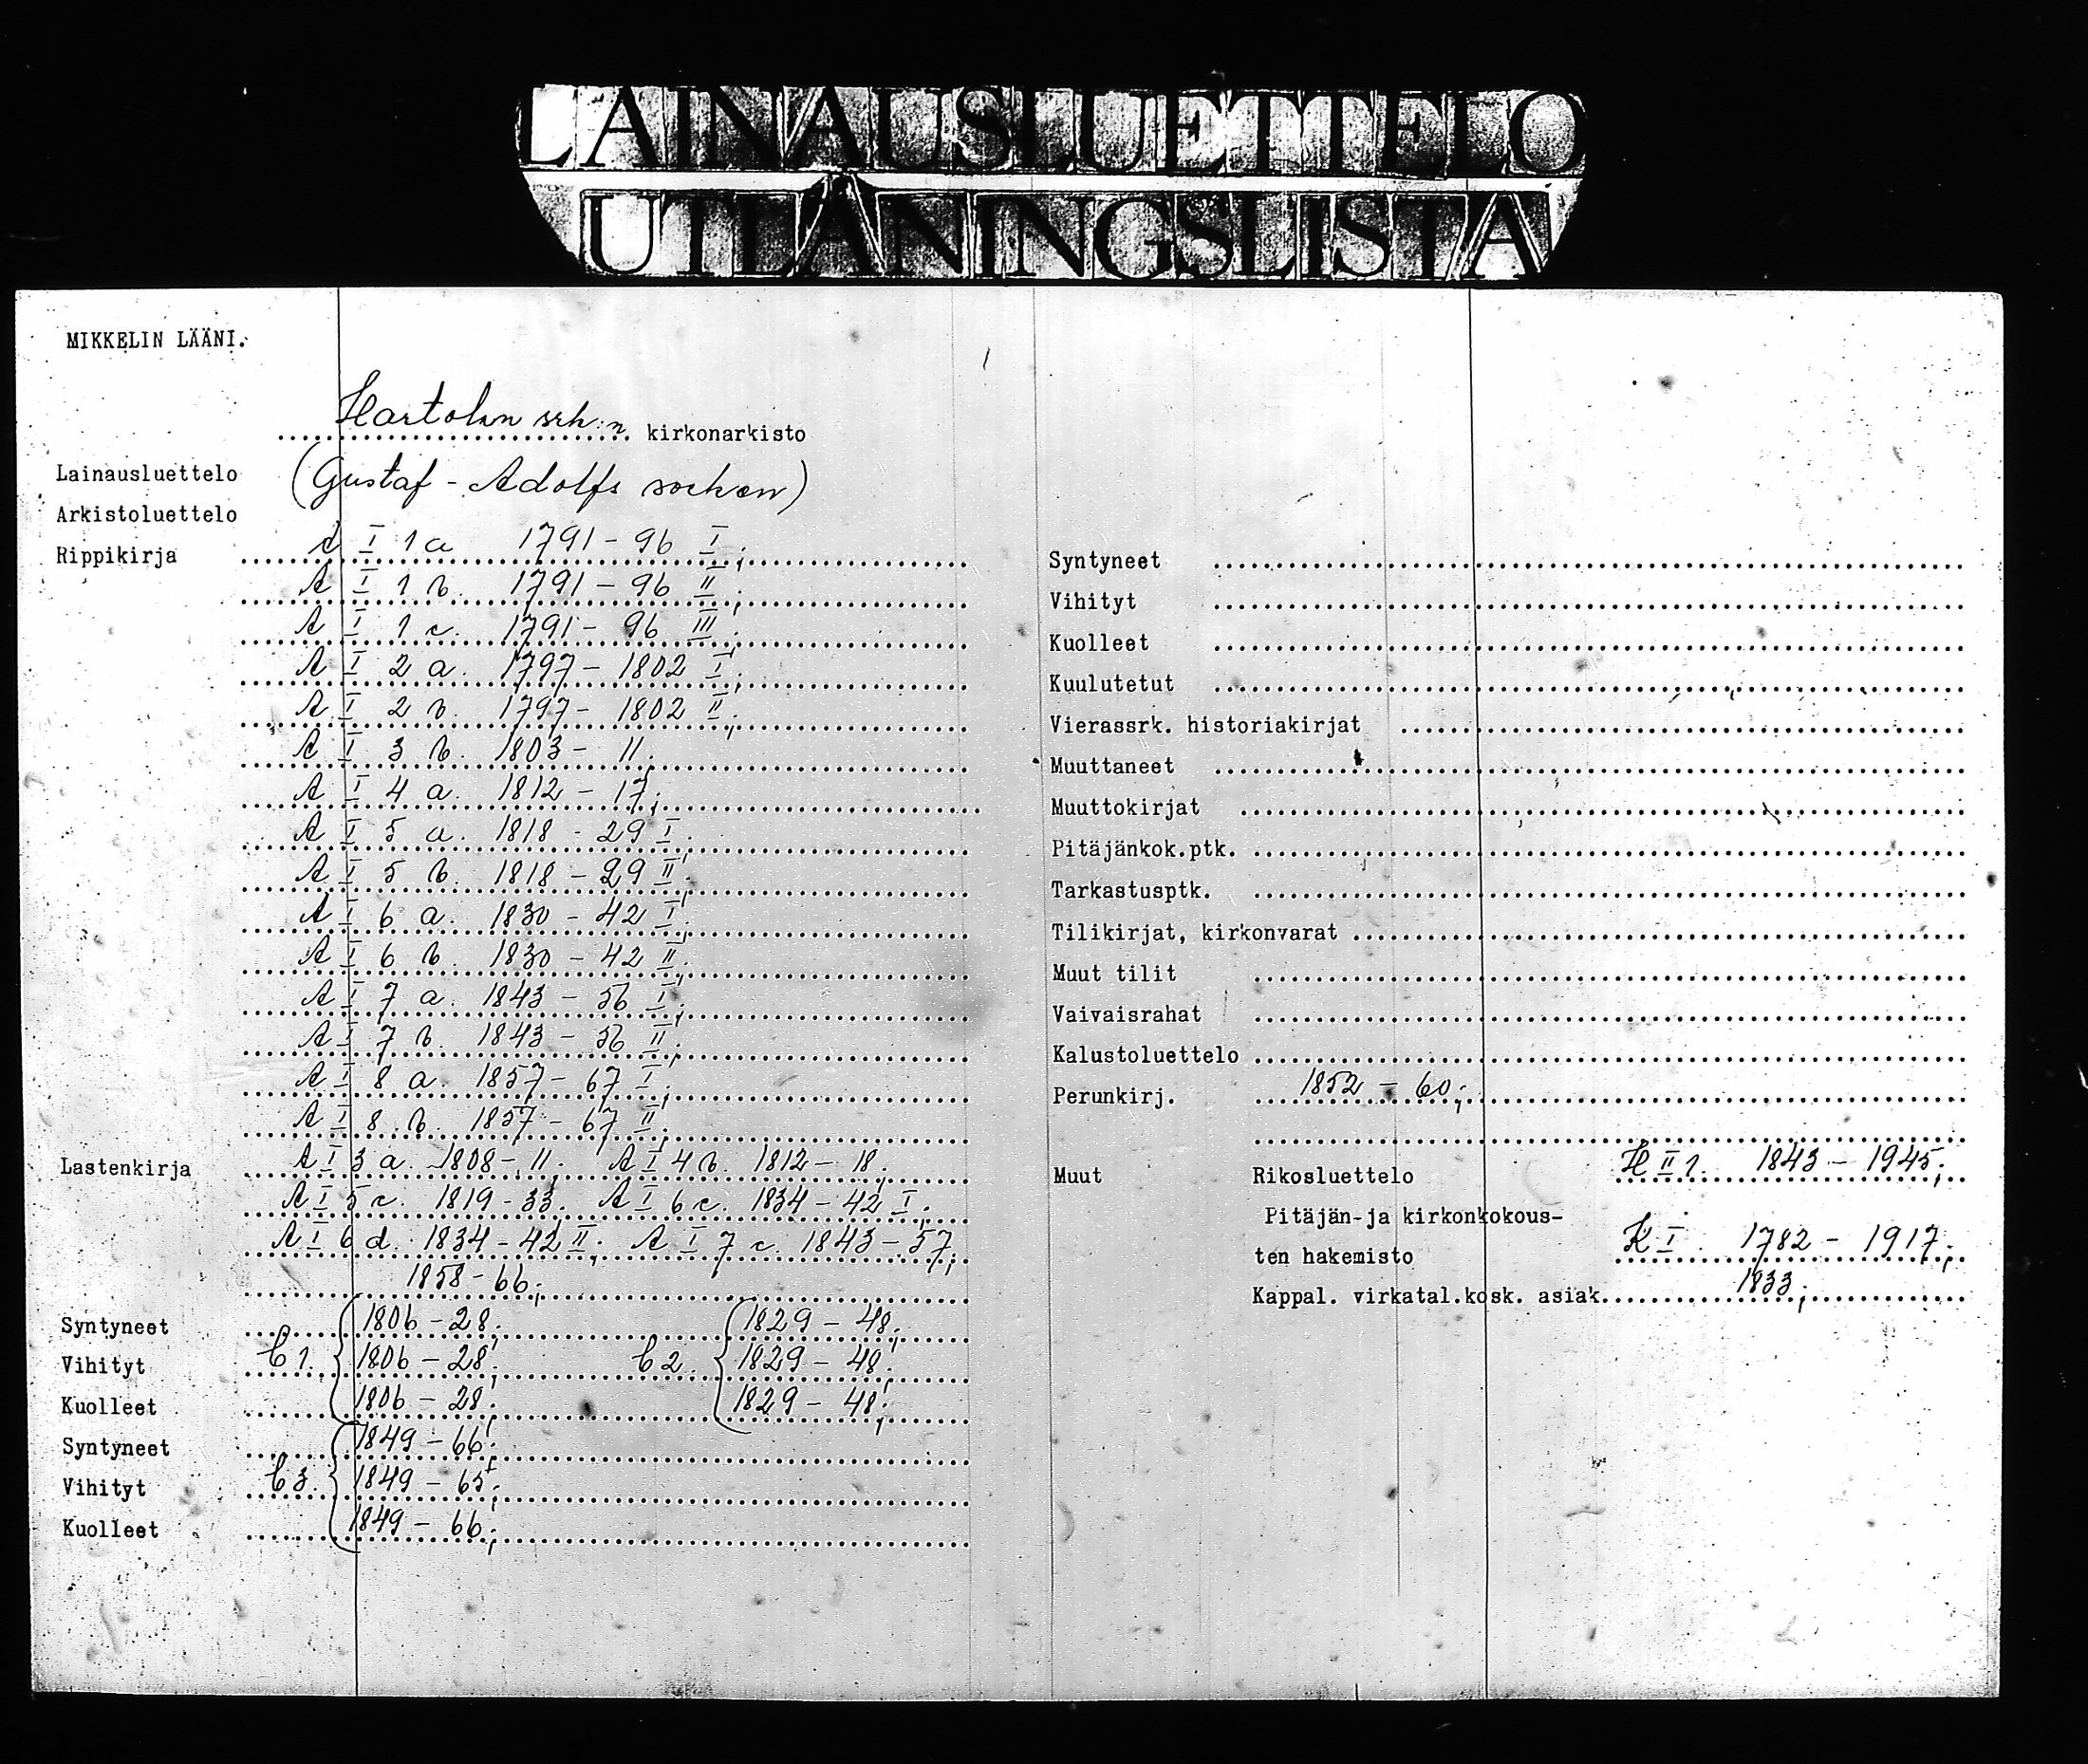 LAINAUSLUETTELO
UTLÅNINGSLISTA
MIKKELIN LÄÄNI.
Hartolan srk:n kirkonarkisto
Lainausluettelo (Gustaf-Adolfs socken)
Arkistoluettelo
Rippikirja A I 1 a 1791-96 I;
A I 1 b. 1791-96 II;
A I 1 c. 1791-96 III;
A I 2 a. 1797-1802 I;
A I 2 b. 1797-1802 II;
A I 3 b. 1803-11;
A I 4 a. 1812-17;
A I 5 a. 1818-29 I;
A I 5 b. 1818-29 II;
A I 6 a. 1830-42 I;
A I 6 b. 1830-42 II;
A I 7 a. 1843-56 I;
A I 7 b. 1843-56 II;
A I 8 a. 1857-67 I;
A I 8 b. 1857-67 II;
Lastenkirja A I 3 a. 1808-11; A I 4 b. 1812-18;
A I 5 c. 1819-33. A I 6 c. 1834-42 I;
A I 6 d. 1834-42 II; A I 7 c. 1843-57;
1858-66;
Syntyneet 1806-28; 1829-48;
Vihityt C 1. 1806-28; C 2. 1829-48;
Kuolleet 1806-28; 1829-48;
Syntyneet 1849-66;
Vihityt C 3. 1849-65;
Kuolleet 1849-66;
Syntyneet
Vihityt
Kuolleet
Kuulutetut
Vierassrk. historiakirjat
Muuttaneet
Muuttokirjat
Pitäjänkok.ptk.
Tarkastusptk.
Tilikirjat, kirkonvarat
Muut tilit
Vaivaisrahat
Kalustoluettelo
Perunkirj. 1852-60;
Muut Rikosluettelo H II 1. 1843-1945;
Pitäjän-ja kirkonkokous-
ten hakemisto K I. 1782-1917;
Kappal. virkatal.kosk. asiak. 1833;